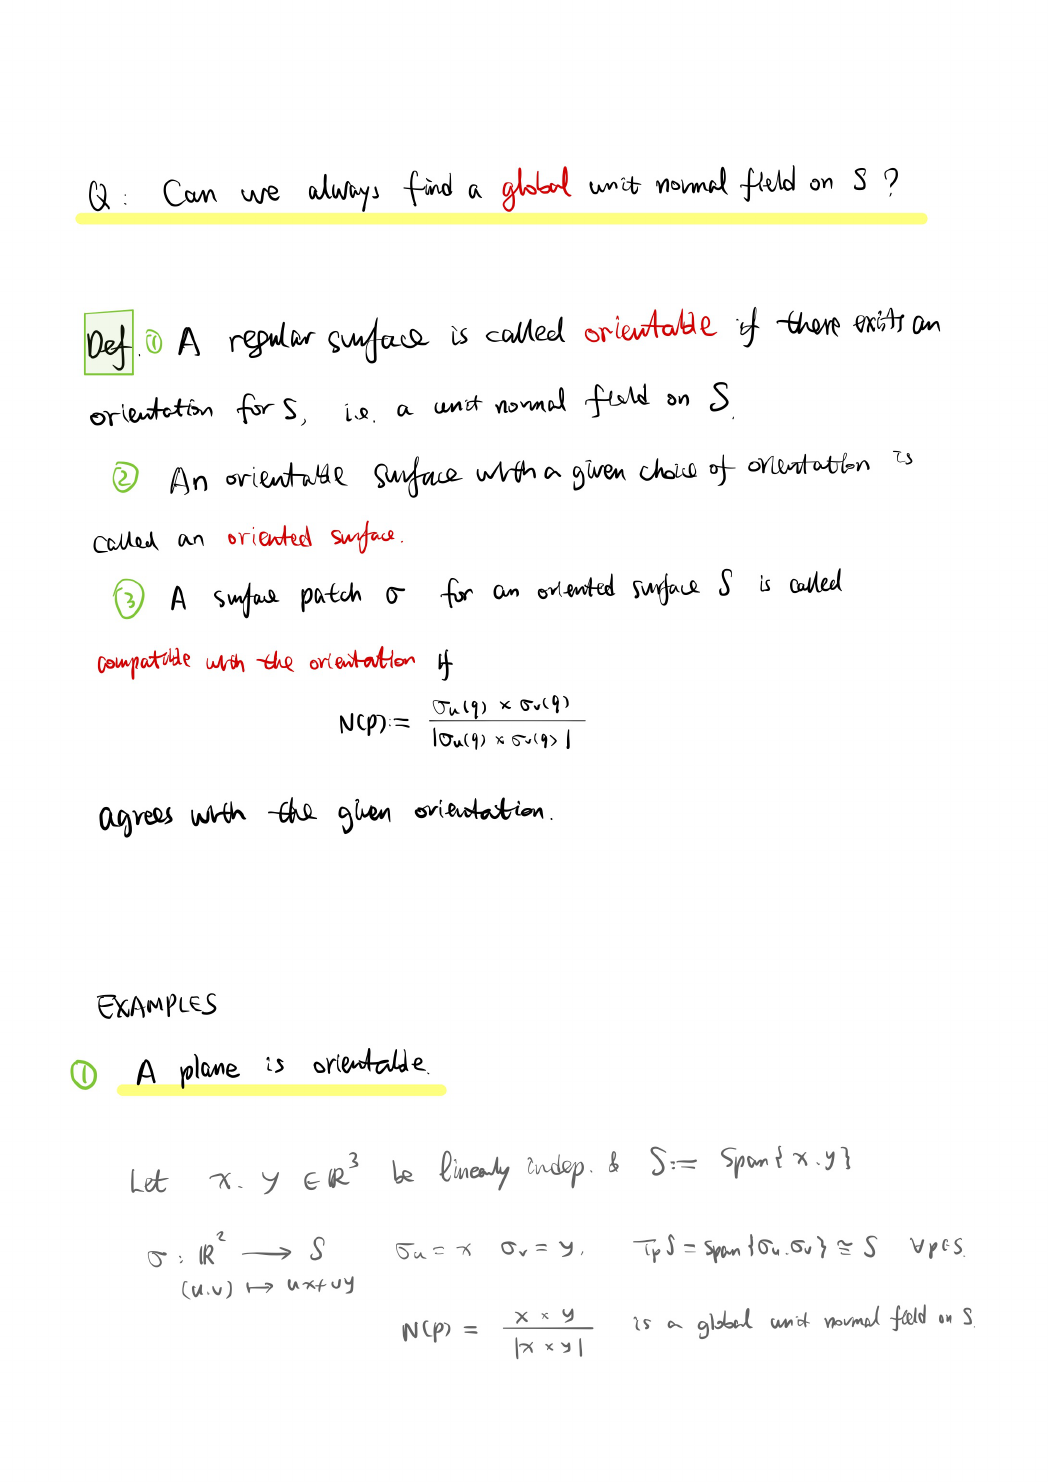 Q: Can we always find a global unit normal field on S?
Def. ① A regular surface is called orientable if there exists an
orientation for S, i.e. a unit normal field on S.
② An orientable surface with a given choice of orientation is
called an oriented surface.
③ A surface patch σ for an oriented surface S is called
compatible with the orientation if
N(p) := σu(q) × σv(q) / |σu(q) × σv(q)|
agrees with the given orientation.
EXAMPLES
① A plane is orientable.
Let x, y ∈ ℝ³ be linearly indep. & S := Span{x, y}
σ : ℝ² ⟶ S σu = x σv = y, TpS = Span{σu, σv} ≅ S ∀p∈S.
(u,v) ↦ ux+vy
N(p) = x × y / |x × y| is a global unit normal field on S.